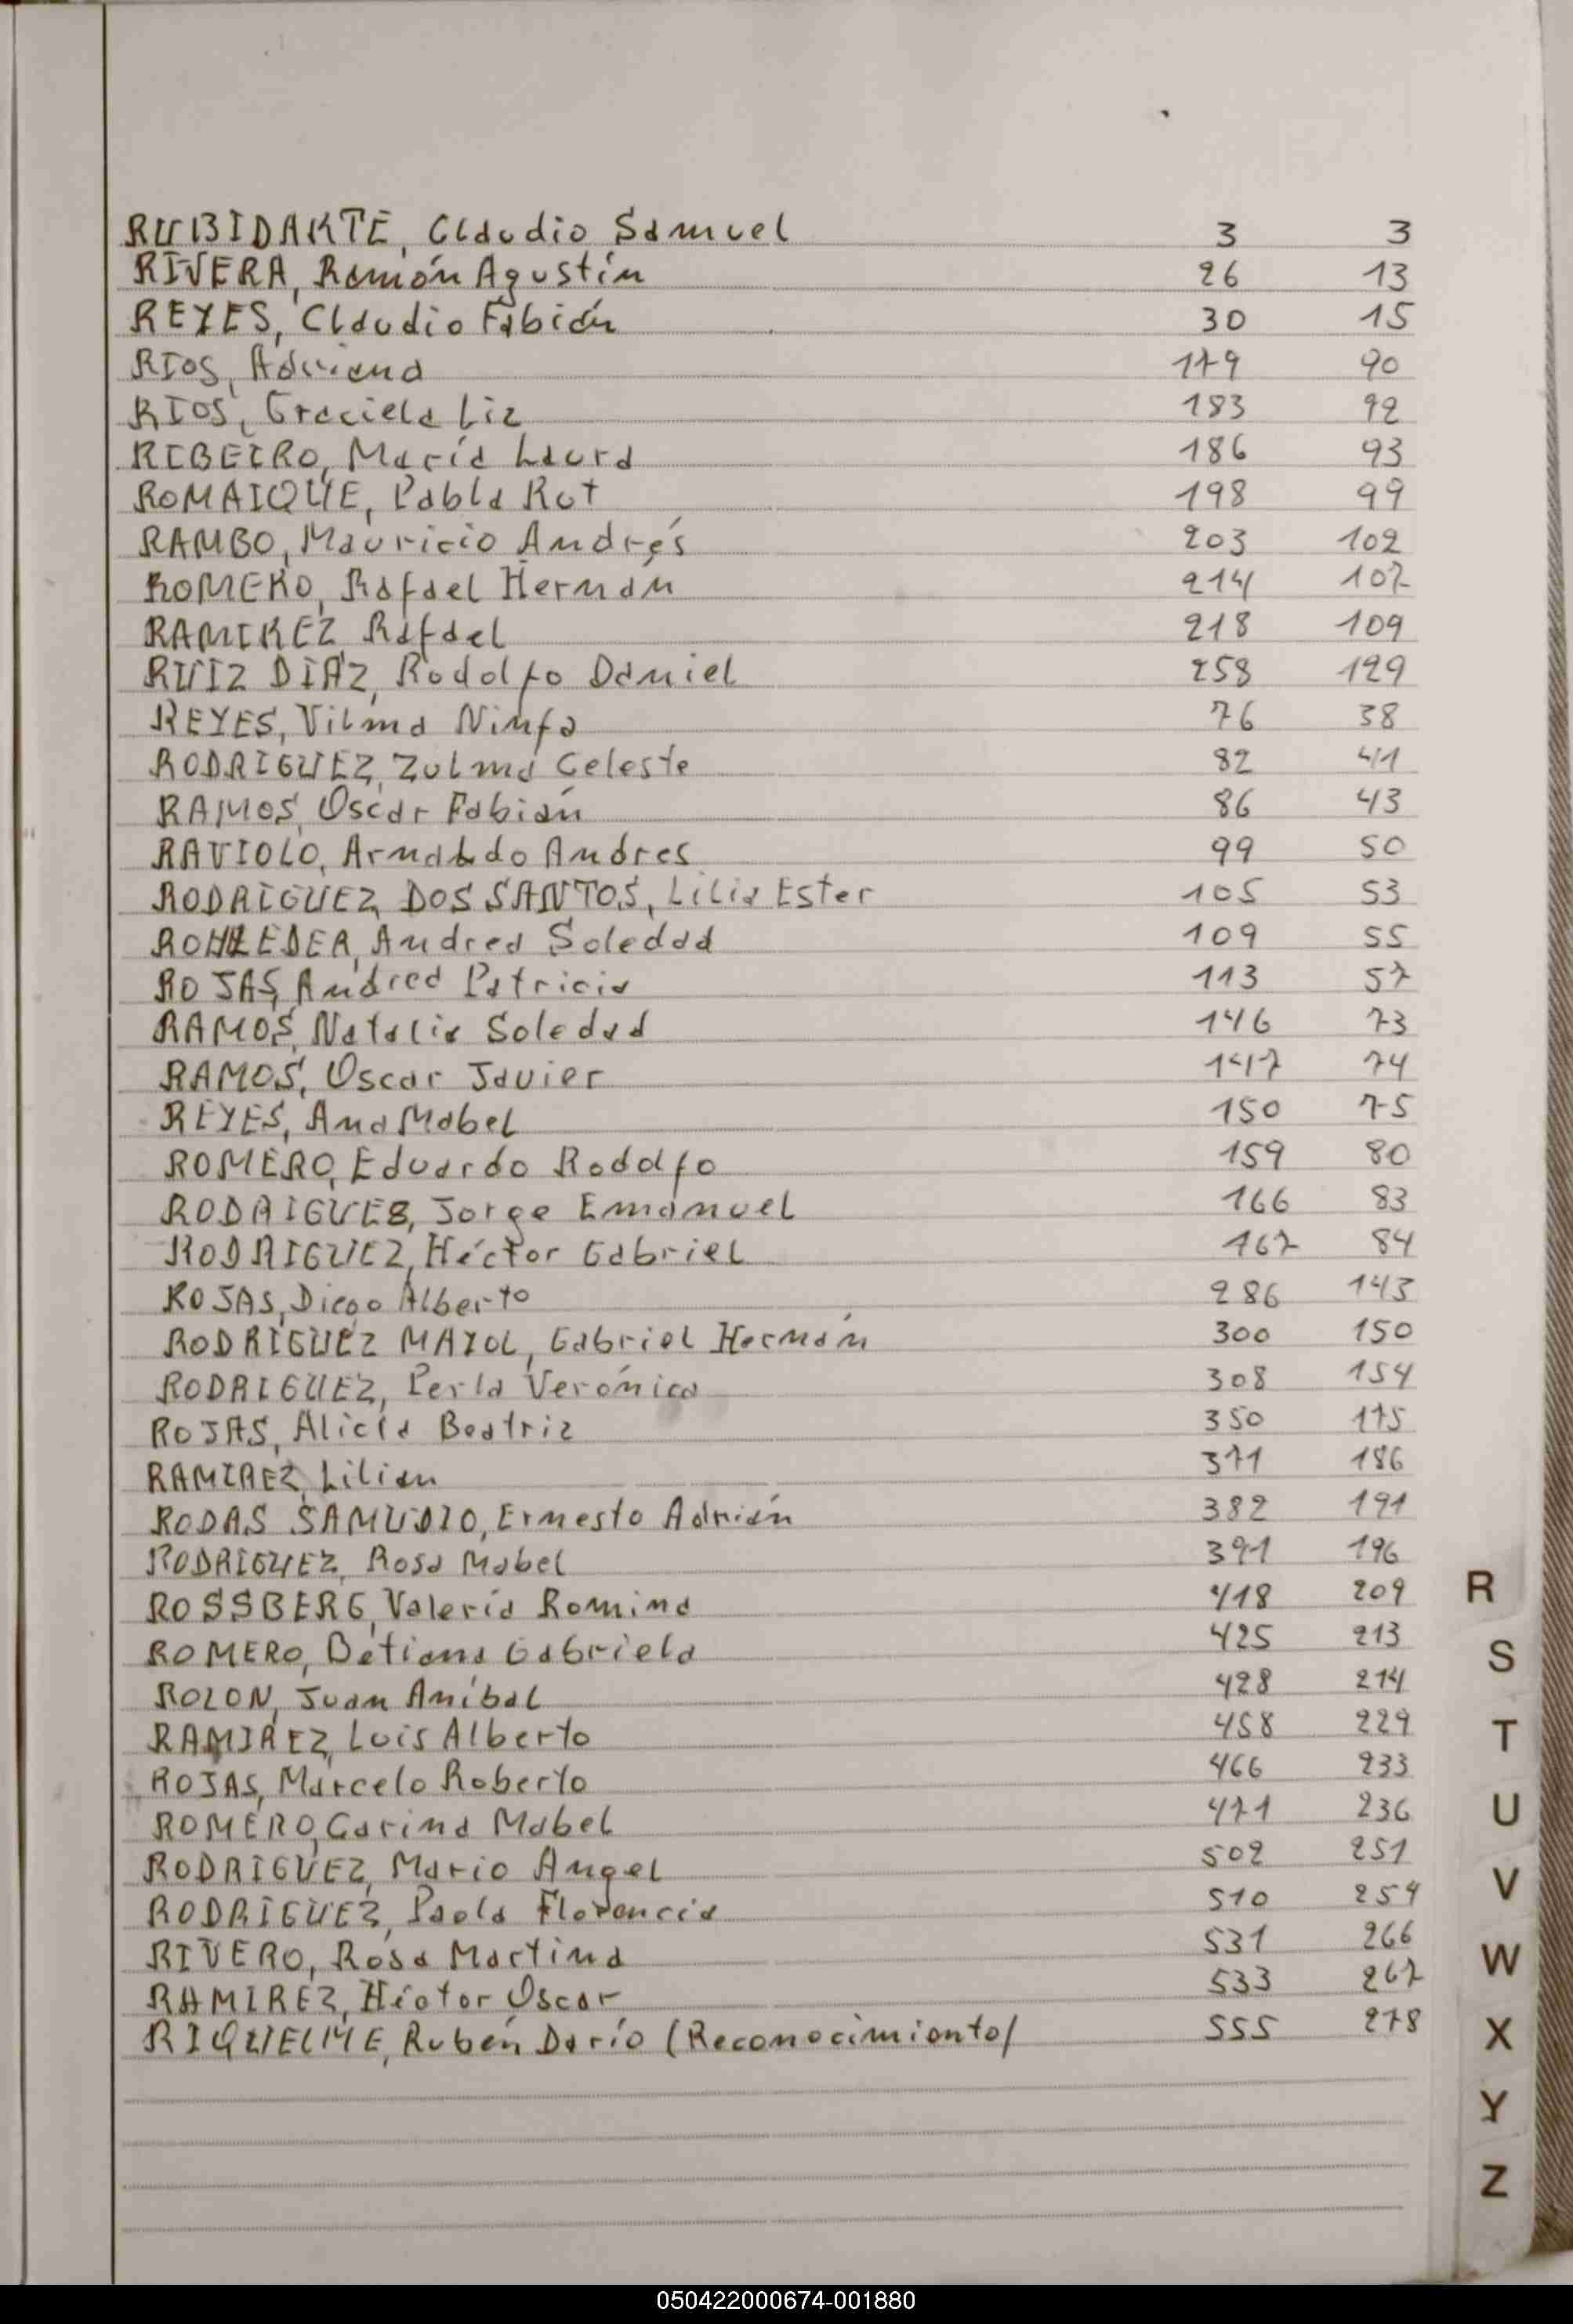 RUBIDARTE, Claudio Samuel 3 3
RIVERA, Ramón Agustín 26 13
REYES, Claudio Fabián 30 15
RIOS, Adriana 179 90
RIOS, Graciela Liz 183 92
RIBEIRO, María Laura 186 93
ROMAIQUE, Pabla Rut 198 99
RAMBO, Mauricio Andrés 203 102
ROMERO, Rafael Hernán 214 107
RAMIREZ Rafael 218 109
RUIZ DIAZ, Rodolfo Daniel 258 129
REYES, Vilma Ninfa 76 38
RODRIGUEZ, Zulma Celeste 82 41
RAMOS, Oscar Fabián 86 43
RAVIOLO, Arnaldo Andres 99 50
RODRIGUEZ DOS SANTOS, Lilia Ester 105 53
ROHLEDER, Andrea Soledad 109 55
ROJAS, Andrea Patricia 113 57
RAMOS, Natalia Soledad 146 73
RAMOS, Oscar Javier 147 74
REYES, Ana Mabel 150 75
ROMERO, Eduardo Rodolfo 159 80
RODRIGUES, Jorge Emanuel 166 83
RODRIGUEZ, Héctor Gabriel 167 84
ROJAS, Diego Alberto 286 143
RODRIGUEZ MAYOL, Gabriel Hernán 300 150
RODRIGUEZ, Perla Verónica 308 154
ROJAS, Alicia Beatriz 350 175
RAMIREZ, Lilian 371 186
RODAS SAMUDIO, Ernesto Adrián 382 191
RODRIGUEZ, Rosa Mabel 391 196
ROSSBERG, Valeria Romina 418 209
ROMERO, Betiana Gabriela 425 213
ROLON, Juan Aníbal 428 214
RAMIREZ, Luis Alberto 458 229
ROJAS, Marcelo Roberto 466 233
ROMERO, Carina Mabel 471 236
RODRIGUEZ, Mario Angel 502 251
RODRIGUEZ, Paola Florencia 510 254
RIVERO, Rosa Martina 531 266
RAMIREZ, Héctor Oscar 533 267
RIQUELME, Rubén Darío (Reconocimiento) 555 278
R
S
T
U
V
W
X
Y
Z
050422000674-001880